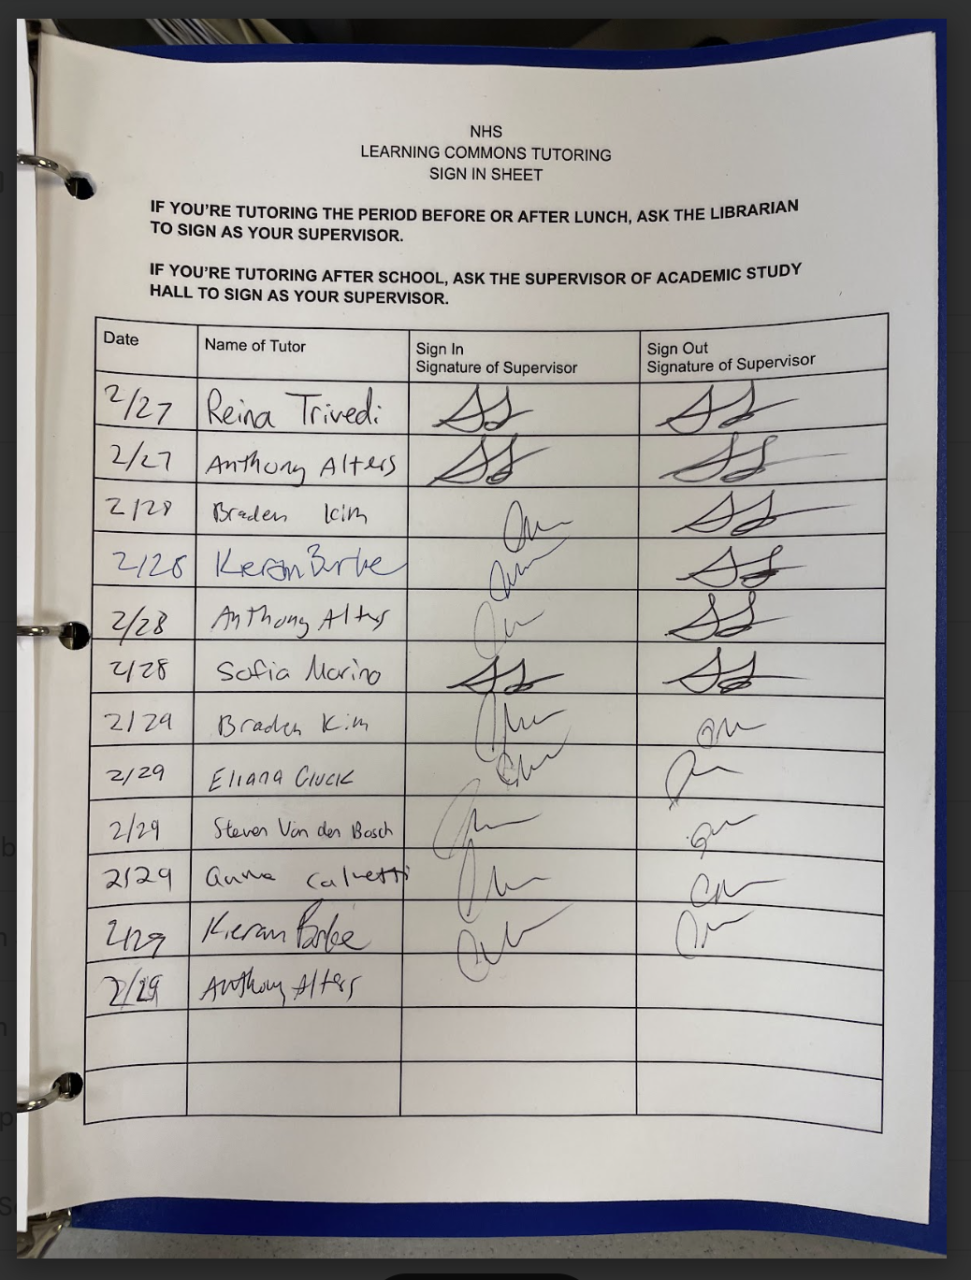 NHS
LEARNING COMMONS TUTORING
SIGN IN SHEET
IF YOU'RE TUTORING THE PERIOD BEFORE OR AFTER LUNCH, ASK THE LIBRARIAN
TO SIGN AS YOUR SUPERVISOR.
IF YOU'RE TUTORING AFTER SCHOOL, ASK THE SUPERVISOR OF ACADEMIC STUDY
HALL TO SIGN AS YOUR SUPERVISOR.
Date Name of Tutor Sign In Sign Out
Signature of Supervisor Signature of Supervisor
2/27 Reina Trivedi
2/27 Anthony Alters
2/28 Braden Kim
2/28 Keran Burke
2/28 Anthony Alters
2/28 Sofia Marino
2/29 Braden Kim
2/29 Eliana Gluck
2/29 Steven Van den Bosch
2/29 anna calvetti
2/29 Kieran
2/29 Anthony Alters